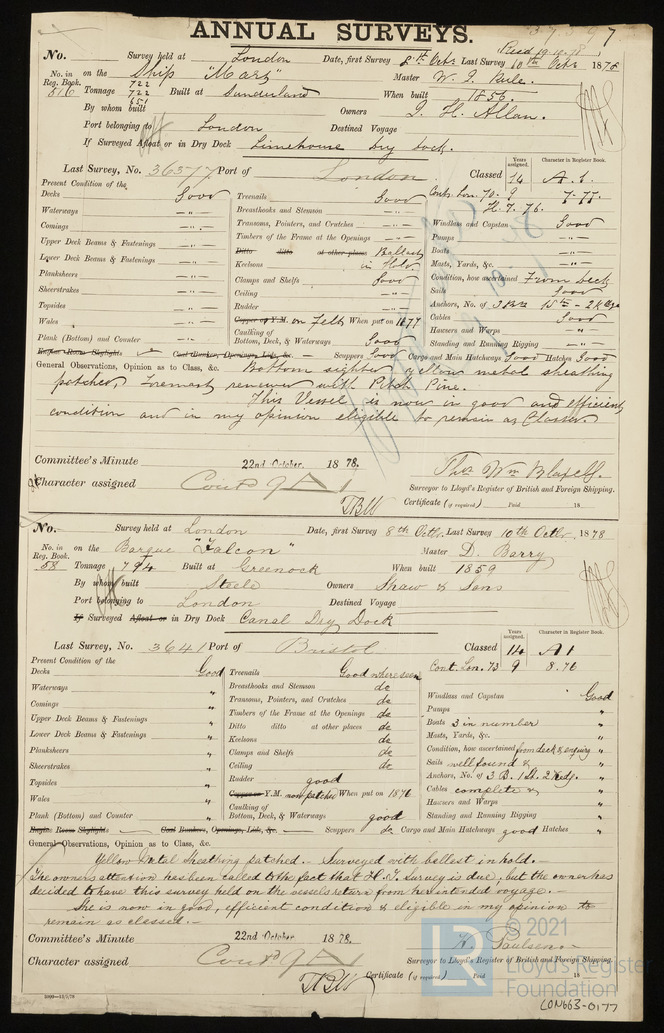 ANNUAL SURVEYS.
No. Survey held at London Date, first Survey 8th Octr Last Survey 10th Octr 1878
No. in Reg. Book. on the Ship "Mars" Master W. J.
516 Tonnage 722 722 651 Built at Sunderland When built 1856.
By whom built Owners J. H. Allan.
Port belonging to London Destined Voyage
If Surveyed Afloat or in Dry Dock Limehouse Dry Dock.
Last Survey, No. 36577 Port of London Classed 14 A.1.
Years assigned. Character in Register Book.
Cont. Lon. 70. 9 7.77.
H.T. 76.
Present Condition of the
Decks Good Treenails Good Windlass and Capstan Good
Waterways -"- Breasthooks and Stemson -"- Pumps -"-
Comings -"- Transoms, Pointers, and Crutches -"- Boats -"-
Upper Deck Beams & Fastenings -"- Timbers of the Frame at the Openings -"- Masts, Yards, &c. -"-
Lower Deck Beams & Fastenings -"- Ditto ditto at other places Ballast in Hold Condition, how ascertained From Deck
Keelsons
Planksheers -"- Clamps and Shelfs Good Sails Good
Sheerstrakes -"- Ceiling -"- Anchors, No. of 3 Br 1 St - 2 Kdge
Topsides -"- Rudder -"- Cables Good
Wales -"- Copper or Y.M. on Felt When put on 1877 Hawsers and Warps -"-
Plank (Bottom) and Counter -"- Caulking of Bottom, Deck, & Waterways Good Standing and Running Rigging -"-
Engine Room Skylights Coal Bunkers, Openings, Lids, &c. Scuppers Good Cargo and Main Hatchways Good Hatches Good
General Observations, Opinion as to Class, &c. Bottom sighted yellow metal sheathing
patched Foremast renewed with Pitch Pine.
This Vessel is now in good and efficient
condition and in my opinion eligible to remain as Classed.
Committee's Minute 22nd October. 1878.
Character assigned Contd 9 A 1
Thos Wm
Surveyor to Lloyd's Register of British and Foreign Shipping.
Certificate (if required) Paid 18
No. Survey held at London Date, first Survey 8th Octr. Last Survey 10th Octr. 1878
No. in Reg. Book. on the Barque "Falcon" Master D. Barry
58 Tonnage 794 Built at Greenock When built 1859
By whom built Steele Owners Shaw & Sons
Port belonging to London Destined Voyage
If Surveyed Afloat or in Dry Dock Canal Dry Dock
Last Survey, No. 3641 Port of Bristol Classed 14 A1
Years assigned. Character in Register Book.
Cont. Lon. 73 9 8.76
Present Condition of the
Decks Good Treenails Good where seen Windlass and Capstan Good
Waterways " Breasthooks and Stemson do Pumps "
Comings " Transoms, Pointers, and Crutches do Boats 3 in number "
Upper Deck Beams & Fastenings " Timbers of the Frame at the Openings do Masts, Yards, &c. "
Lower Deck Beams & Fastenings " Ditto ditto at other places do Condition, how ascertained from deck & enquiry
Keelsons do
Planksheers " Clamps and Shelfs do Sails well found & "
Sheerstrakes " Ceiling do Anchors, No. of 3 B. 1 St. 2 Kedg. "
Topsides " Rudder good Cables complete & "
Wales " Copper or Y.M. now patched When put on 1876 Hawsers and Warps "
Plank (Bottom) and Counter " Caulking of Bottom, Deck, & Waterways good Standing and Running Rigging "
Engine Room Skylights Coal Bunkers, Openings, Lids, &c. Scuppers do Cargo and Main Hatchways good Hatches "
General Observations, Opinion as to Class, &c.
Yellow Metal Sheathing patched. - Surveyed with ballast in hold. -
The owners attention has been called to the fact that H.T. survey is due, but the owner has
decided to have this survey held on the vessels return from her intended voyage. -
She is now in good, efficient condition & eligible in my opinion to
remain as classed. -
Committee's Minute 22nd October. 1878.
Character assigned Contd 9 A 1
H. Paulsen
Surveyor to Lloyd's Register of British and Foreign Shipping.
Certificate (if required) Paid 18
© 2021
LR
Lloyd's Register
Foundation
LON663-0177